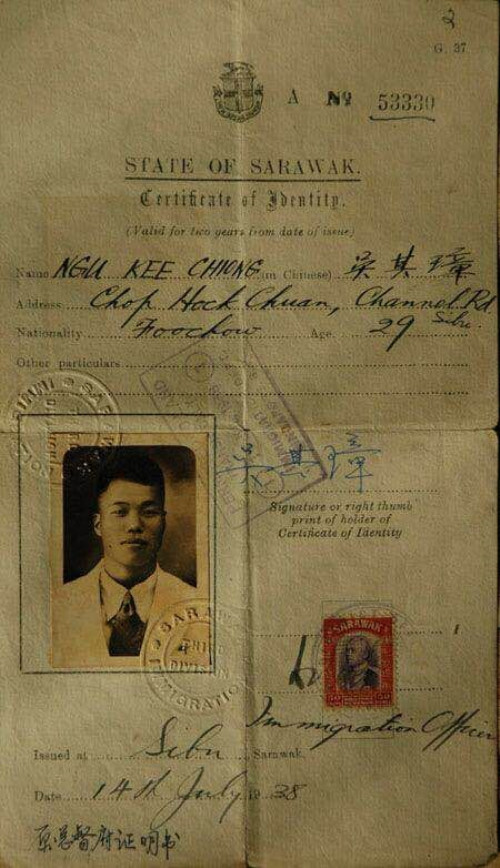 2
G. 37
A No 53330
STATE OF SARAWAK.
Certificate of Identity.
(Valid for two years from date of issue)
Name NGU KEE CHIONG (in Chinese) 吴其璋
Address Chop Hock Chuan, Channel Rd
Sibu.
Nationality Foochow Age 29
Other particulars
吴其璋
Signature or right thumb
print of holder of
Certificate of Identity
SARAWAK
THIRD
DIVISION
IMMIGRATION
SARAWAK
50 50
Immigration Officer
Issued at Sibu Sarawak.
Date 14th July 1938
原总督府证明书